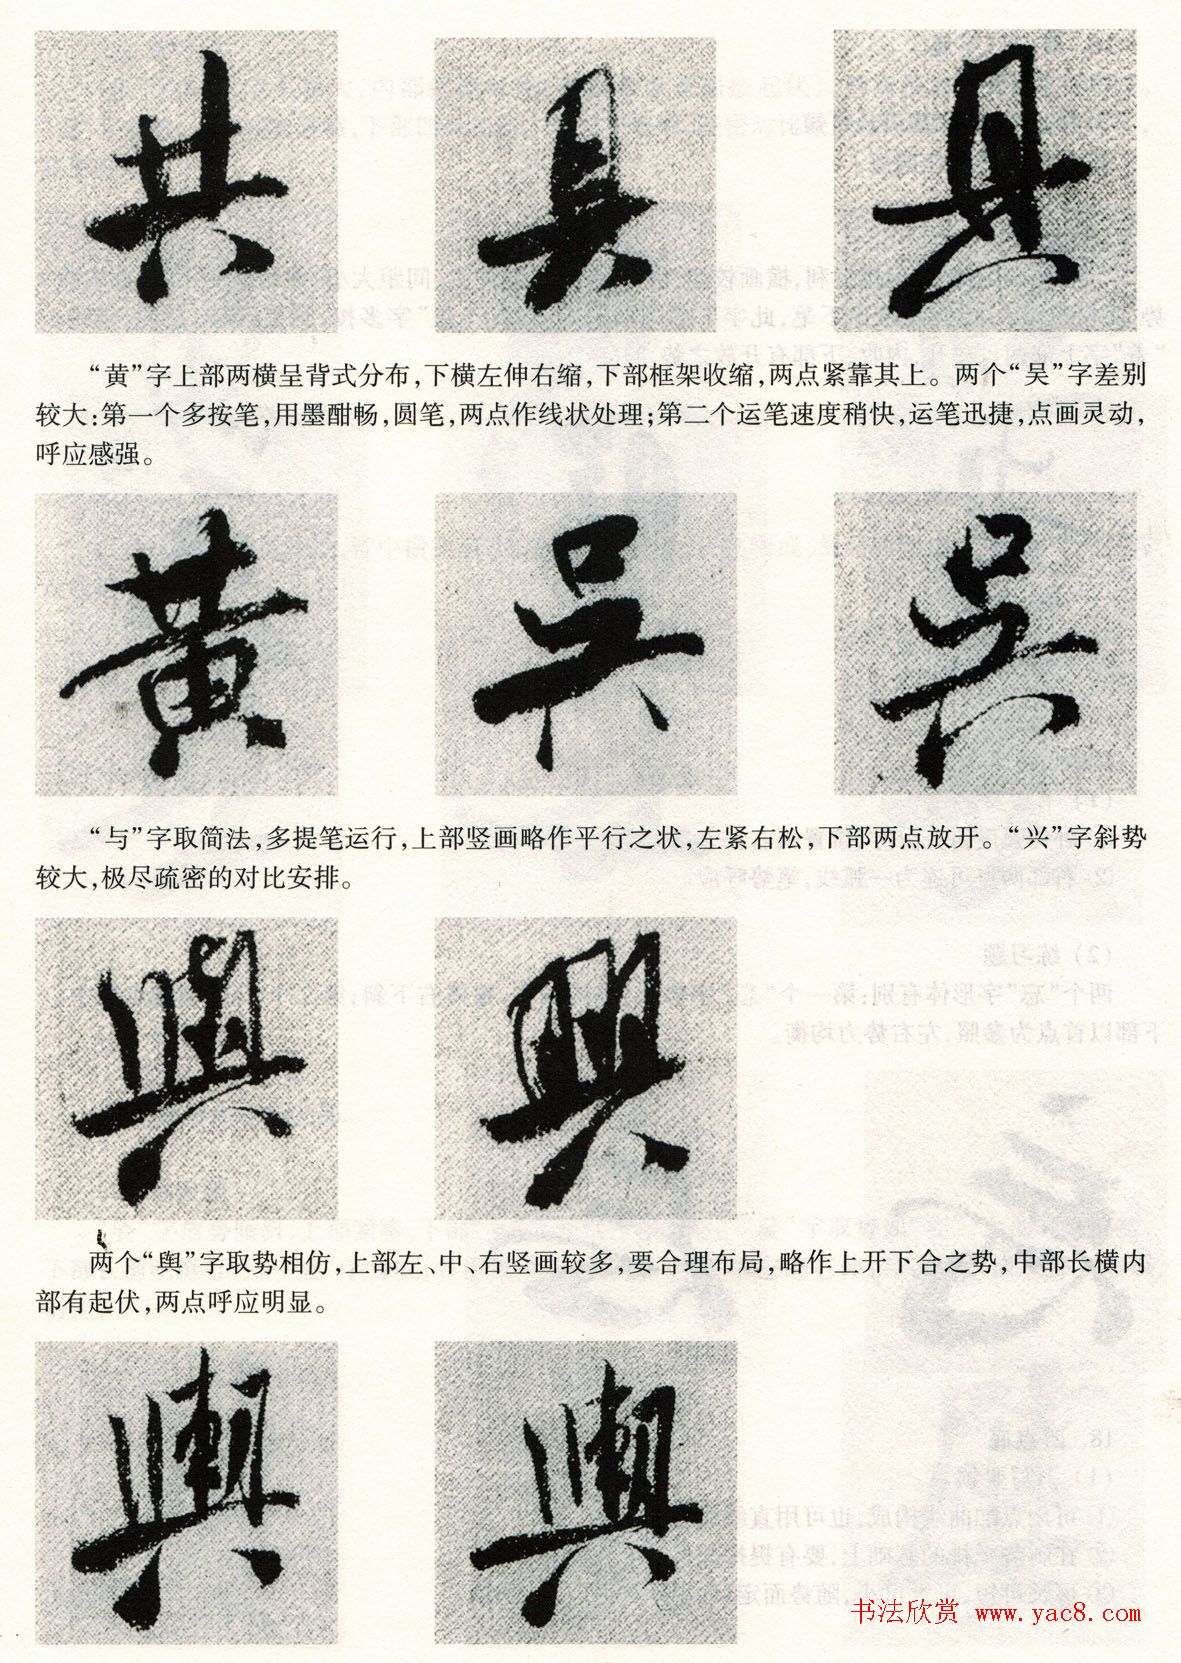 共 具 具
“黄”字上部两横呈背式分布,下横左伸右缩,下部框架收缩,两点紧靠其上。两个“吴”字差别
较大:第一个多按笔,用墨酣畅,圆笔,两点作线状处理;第二个运笔速度稍快,运笔迅捷,点画灵动,
呼应感强。
黄 吴 吴
“与”字取简法,多提笔运行,上部竖画略作平行之状,左紧右松,下部两点放开。“兴”字斜势
较大,极尽疏密的对比安排。
與 興
两个“舆”字取势相仿,上部左、中、右竖画较多,要合理布局,略作上开下合之势,中部长横内
部有起伏,两点呼应明显。
輿 輿
书法欣赏 www.yac8.com